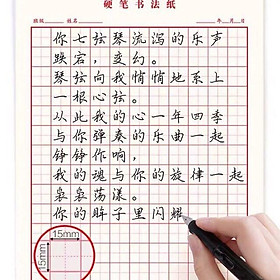 硬笔书法纸
班级 姓名 年 月 日
你七弦琴流泻的乐声
跌宕，变幻。
琴弦向我悄悄地系上
一根心弦。
从此我的心一年四季
与你弹奏的乐曲一起
铮铮作响，
我的魂与你的旋律一起
袅袅荡漾。
你的眸子里闪耀
15mm
15mm